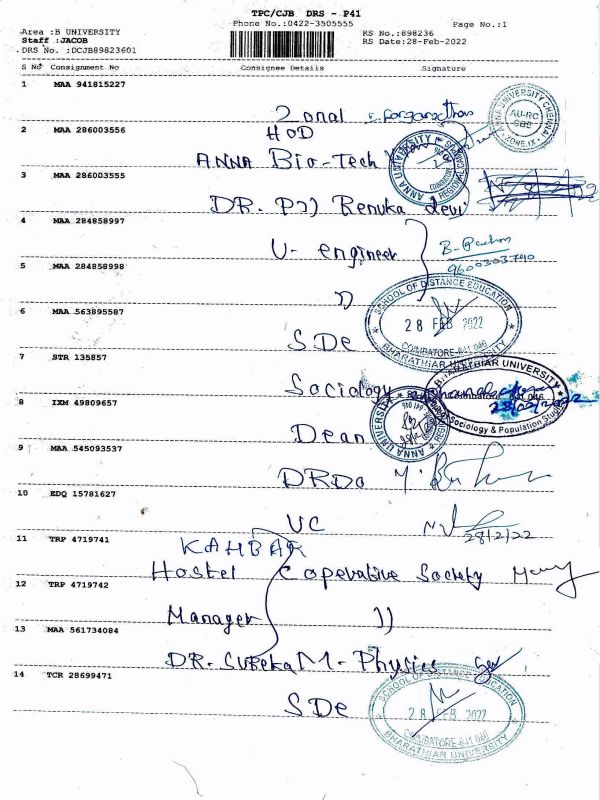 TPC/CJB DRS - P41
Phone No.:0422-3505555 Page No.:1
Area :B UNIVERSITY RS No.:898236
Staff :JACOB RS Date:28-Feb-2022
DRS No. :DCJB89823601
S No Consignment No Consignee Details Signature
1 MAA 941815227
Zonal
2 MAA 286003556
HOD
ANNA Bio-Tech
3 MAA 286003555
DR. P)) Renuka devi
4 MAA 284858997
U- engineer
9600303790
5 MAA 284858998
))
6 MAA 563895587
SDe
SCHOOL OF DISTANCE EDUCATION
28 FEB 2022
COIMBATORE-641 046
BHARATHIAR UNIVERSITY
7 STR 135857
Sociology
BHARATHIAR UNIVERSITY
641 046
Sociology & Population Studies
8 IXM 49809657
Dean
ANNA UNIVERSITY
9 MAA 545093537
DRDO
10 EDQ 15781627
VC
28/2/22
11 TRP 4719741
KAHBAR
Hostel Coperative Society
12 TRP 4719742
Manager ))
13 MAA 561734084
DR. SUREKA M - Physics
14 TCR 28699471
SDe
SCHOOL OF DISTANCE EDUCATION
28 FEB 2022
COIMBATORE-641 046
BHARATHIAR UNIVERSITY
ANNA UNIVERSITY CHENNAI
AU-RC
CBE
ZONE IX
ANNA UNIVERSITY
COIMBATORE